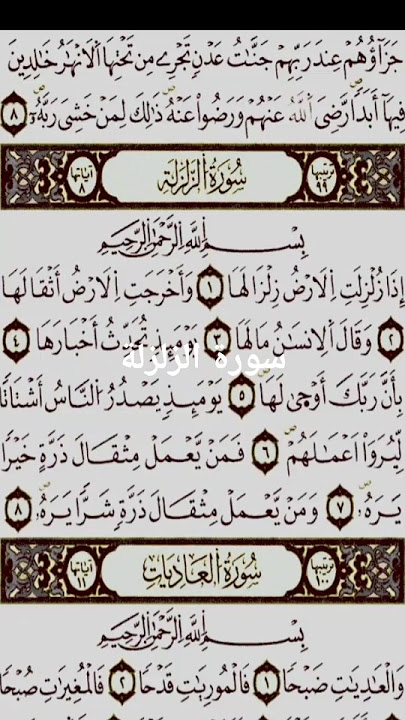 جَزَآؤُهُمْ عِندَ رَبِّهِمْ جَنَّٰتُ عَدْنٍ تَجْرِے مِن تَحْتِهَا اَ۬لَانْهَٰرُ خَٰلِدِينَ
فِيهَآ أَبَداٗ رَّضِيَ اَ۬للَّهُ عَنْهُمْ وَرَضُواْ عَنْهُ ذَٰلِكَ لِمَنْ خَشِيَ رَبَّهُۥ ٨
ترتيبها ٩٩ سُورَةُ الزَّلْزَلَة آياتها ٨
بِسْمِ اللَّهِ الرَّحْمَٰنِ الرَّحِيمِ
إِذَا زُلْزِلَتِ اِ۬لَارْضُ زِلْزَالَهَا ١ وَأَخْرَجَتِ اِ۬لَارْضُ أَثْقَالَهَا
٢ وَقَالَ اَ۬لِانسَٰنُ مَا لَهَا ٣ يَوْمَئِذٖ تُحَدِّثُ أَخْبَارَهَا ٤
سورة الزلزلة
بِأَنَّ رَبَّكَ أَوْحَىٰ لَهَا ٥ يَوْمَئِذٖ يَصْدُرُ اُ۬لنَّاسُ أَشْتَاتاٗ
لِّيُرَوَاْ اَعْمَٰلَهُمْ ٦ فَمَنْ يَّعْمَلْ مِثْقَالَ ذَرَّةٍ خَيْراٗ
يَرَهُۥ ٧ وَمَنْ يَّعْمَلْ مِثْقَالَ ذَرَّةٖ شَرّاٗ يَرَهُۥ ٨
ترتيبها ١٠٠ سُورَةُ الْعَادِيَاتِ آياتها ١١
بِسْمِ اللَّهِ الرَّحْمَٰنِ الرَّحِيمِ
وَالْعَٰدِيَٰتِ ضَبْحاٗ ١ فَالْمُورِيَٰتِ قَدْحاٗ ٢ فَالْمُغِيرَٰتِ صُبْحاٗ